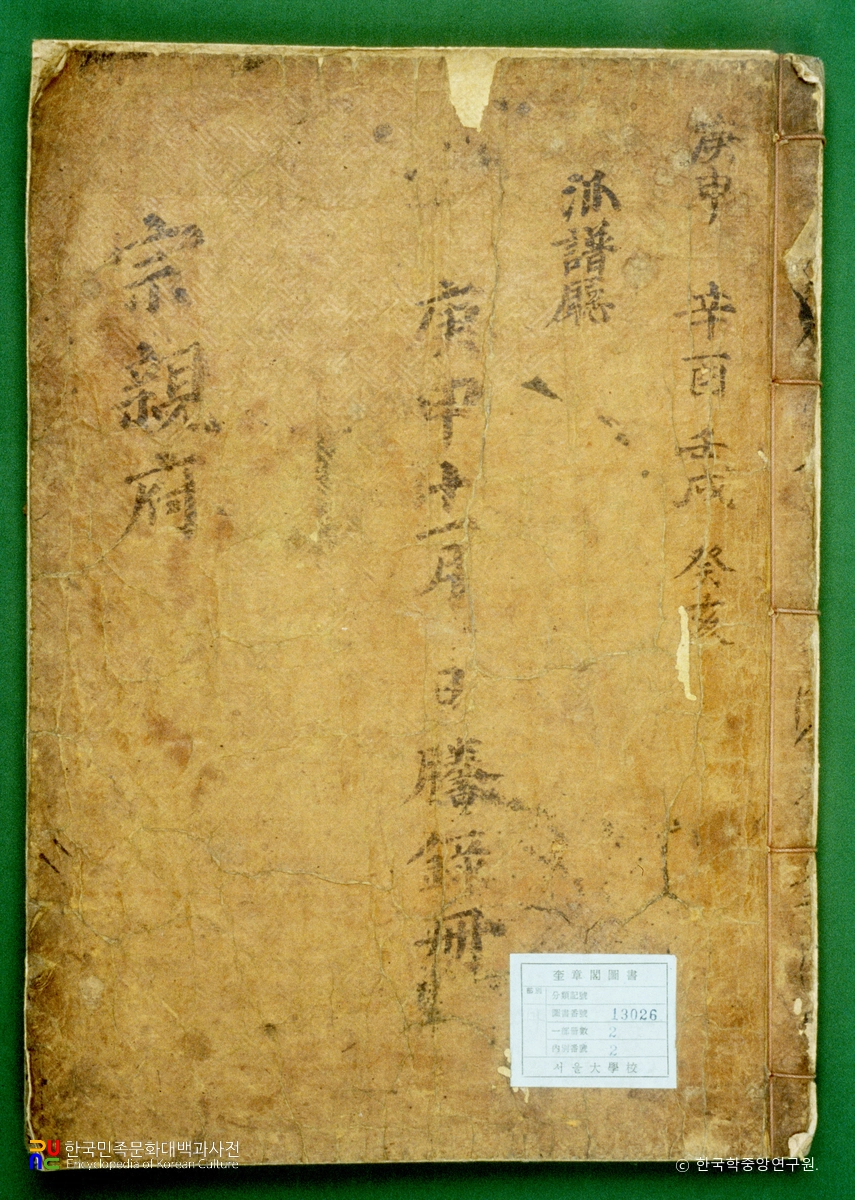 庚申 辛酉 壬戌 癸亥
派譜廳
庚申十一月 日謄錄冊
宗親府
奎章閣圖書
分類記號
圖書番號 13026
一部冊數 2
內別番號 2
서울大學校
한국민족문화대백과사전
Encyclopedia of Korean Culture
© 한국학중앙연구원.